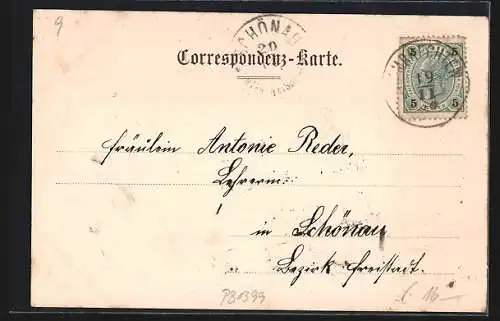 9
SCHÖNAU
20
Correspondenz-Karte.
5 5
19
11
5 5
Fräulein Antonie Reder,
Lehrerin
in Schönau
Bezirk Freistadt.
PB0399
16